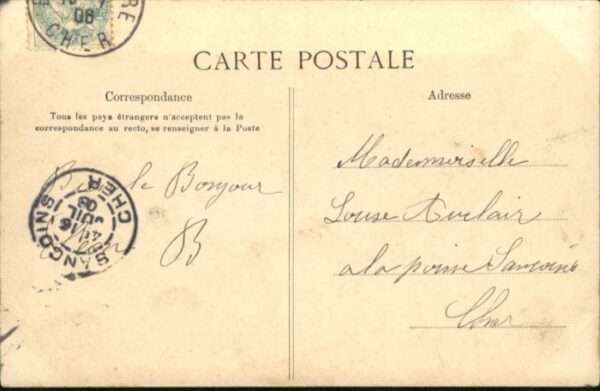 RE
08
CHER
CARTE POSTALE
Correspondance
Adresse
Tous les pays étrangers n'acceptent pas la
correspondance au recto, se renseigner à la Poste
le Bonjour
B
SANCOINS
16
JUIL
08
CHER
Mademoiselle
Louise Auclair
a la
Cher